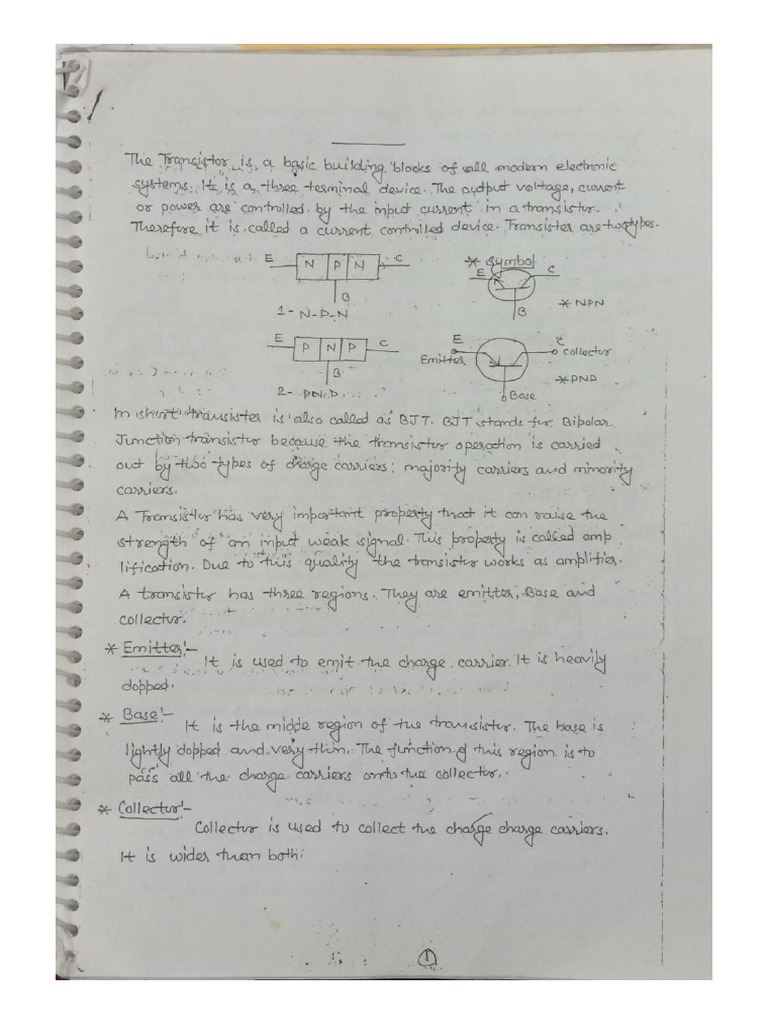 The Transistor is a basic building blocks of all modern electronic
systems. It is a three terminal device. The output voltage, current
or power are controlled by the input current in a transistor.
Therefore it is called a current controlled device. Transister are two types.
E N P N C
B
1- N-P-N
* Symbol
E C
B
* NPN
E P N P C
B
2- PNP
E C
Emitter Collector
* PNP
Base
In short transister is also called as BJT. BJT stands for Bipolar
Junction transistor because the transistor operation is carried
out by two types of charge carriers: majority carriers and minority
carriers.
A Transistor has very important property that it can raise the
strength of an input weak signal. This property is called amp
lification. Due to this quality the transistor works as amplifier.
A transistor has three regions. They are emitter, Base and
collector.
* Emitter:-
It is used to emit the charge carrier. It is heavily
dopped.
* Base:-
It is the midde region of the transistor. The base is
lightly dopped and very thin. The function of this region is to
pass all the charge carriers onto the collector.
* Collector:-
Collector is used to collect the charge charge carriers.
It is wider than both.
1